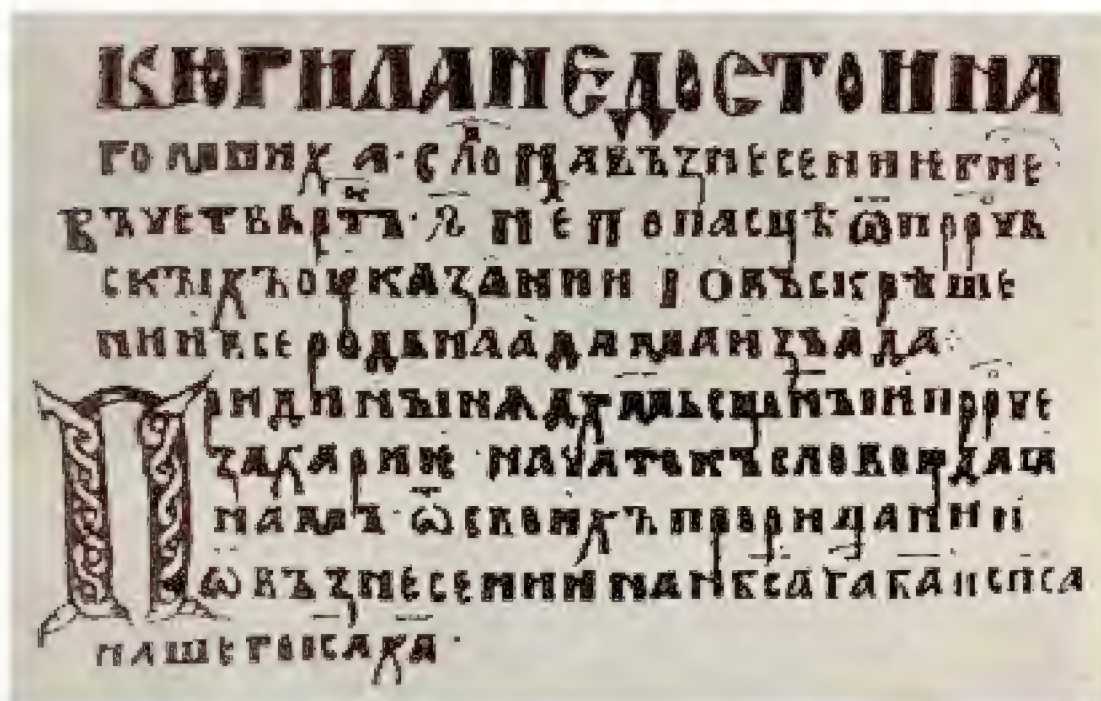 КЮРИЛА НЕДОСТОИНА
ГО МНИХА · СЛО НА ВЪЗНЕСЕНИѤ ГНЕ
ВЪ ЧЕТВЬРТЪ · НЕ ПО ПАСЦѢ Ѿ ПРРЧЬ
СКЪІХЪ ОУКАЗАНИИ І О ВЪСКРѢШЕ
НИИ ВСЕРОДЬНАА АДАМА ИЗЪ АДА ·
ПРИДИ НЪІНѦ ДХМЬ СЩНЪІИ ПРРЧЕ
ЗАХАРИѤ НАЧАТОКЪ СЛОВОУ ДАꙖ
НАМЪ · Ѿ СВОИХЪ ПРОРИЦАНИИ
Ѡ ВЪЗНЕСЕНИИ НА НБСА ГА БА И СПСА
НАШЕГО ИСА ХА ·